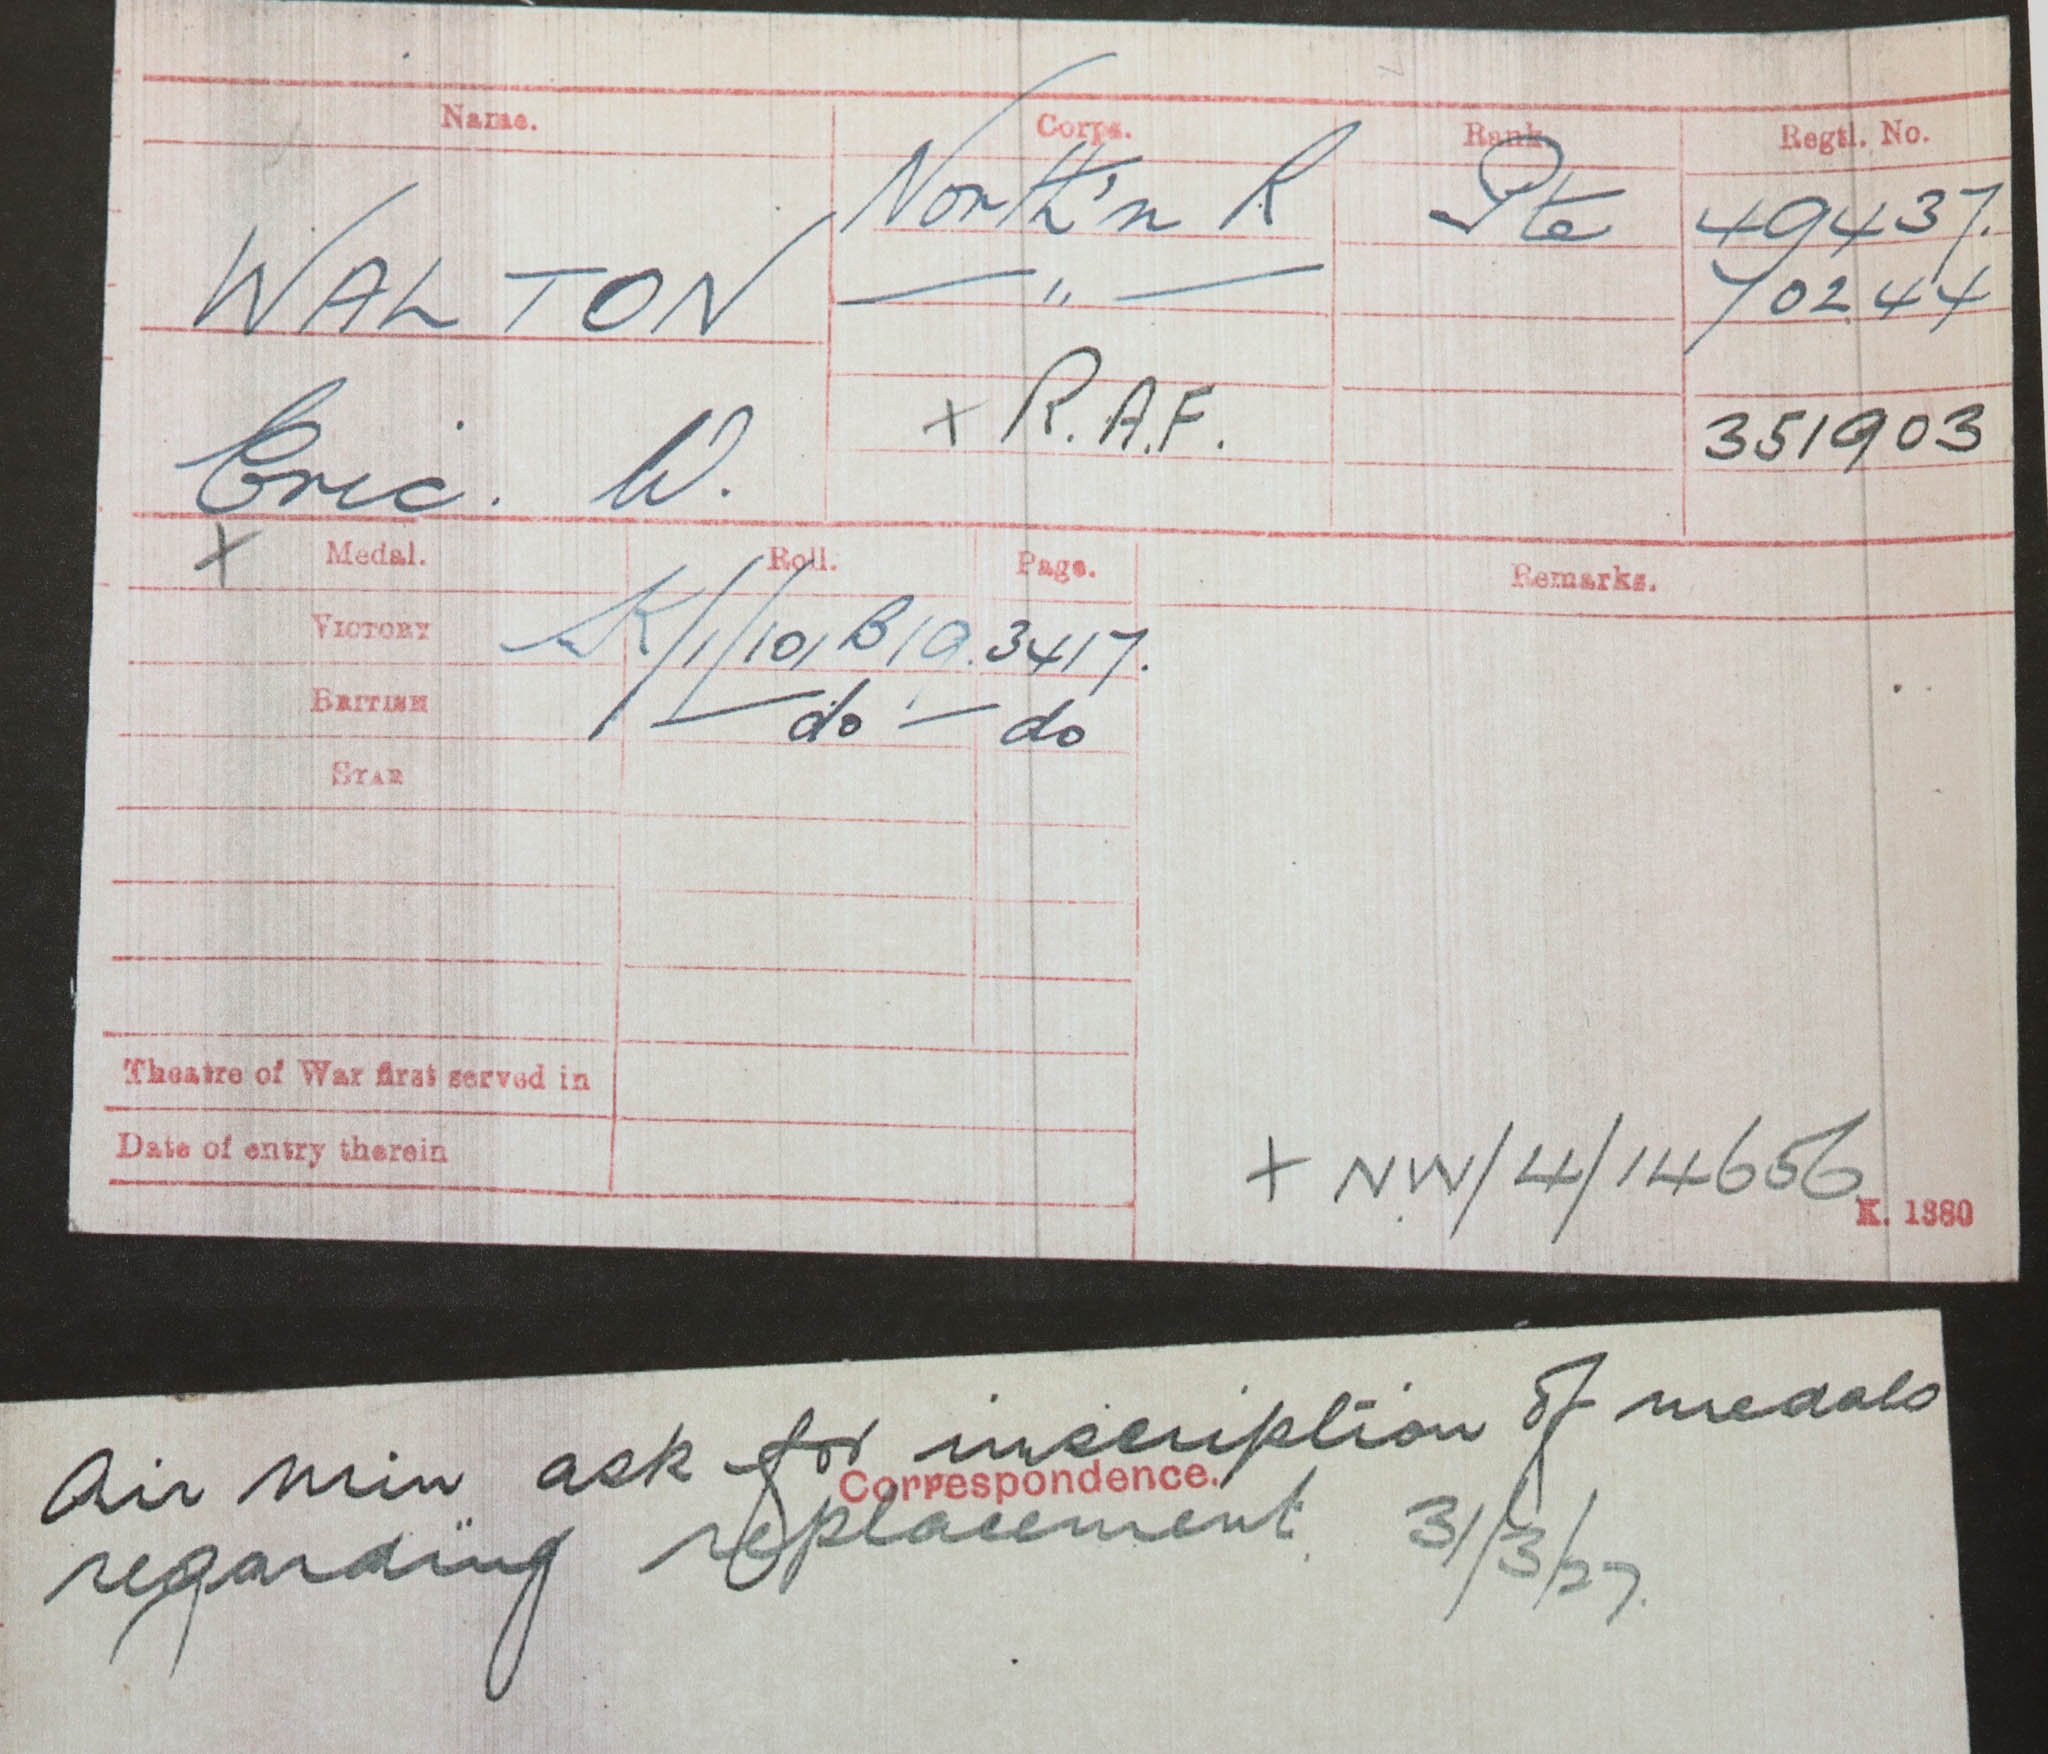 Name. Corps. Rank. Regtl. No.
WALTON North'n R Pte 49437.
— " — 70244
Eric. W. + R.A.F. 351903
+ Medal. Roll. Page. Remarks.
VICTORY K/1/101 B19. 3417.
BRITISH — do — do
STAR
Theatre of War first served in
Date of entry therein
+ NW/4/14656
K. 1380
Air Min ask for inscription of medals
Correspondence.
regarding replacement. 31/3/27.